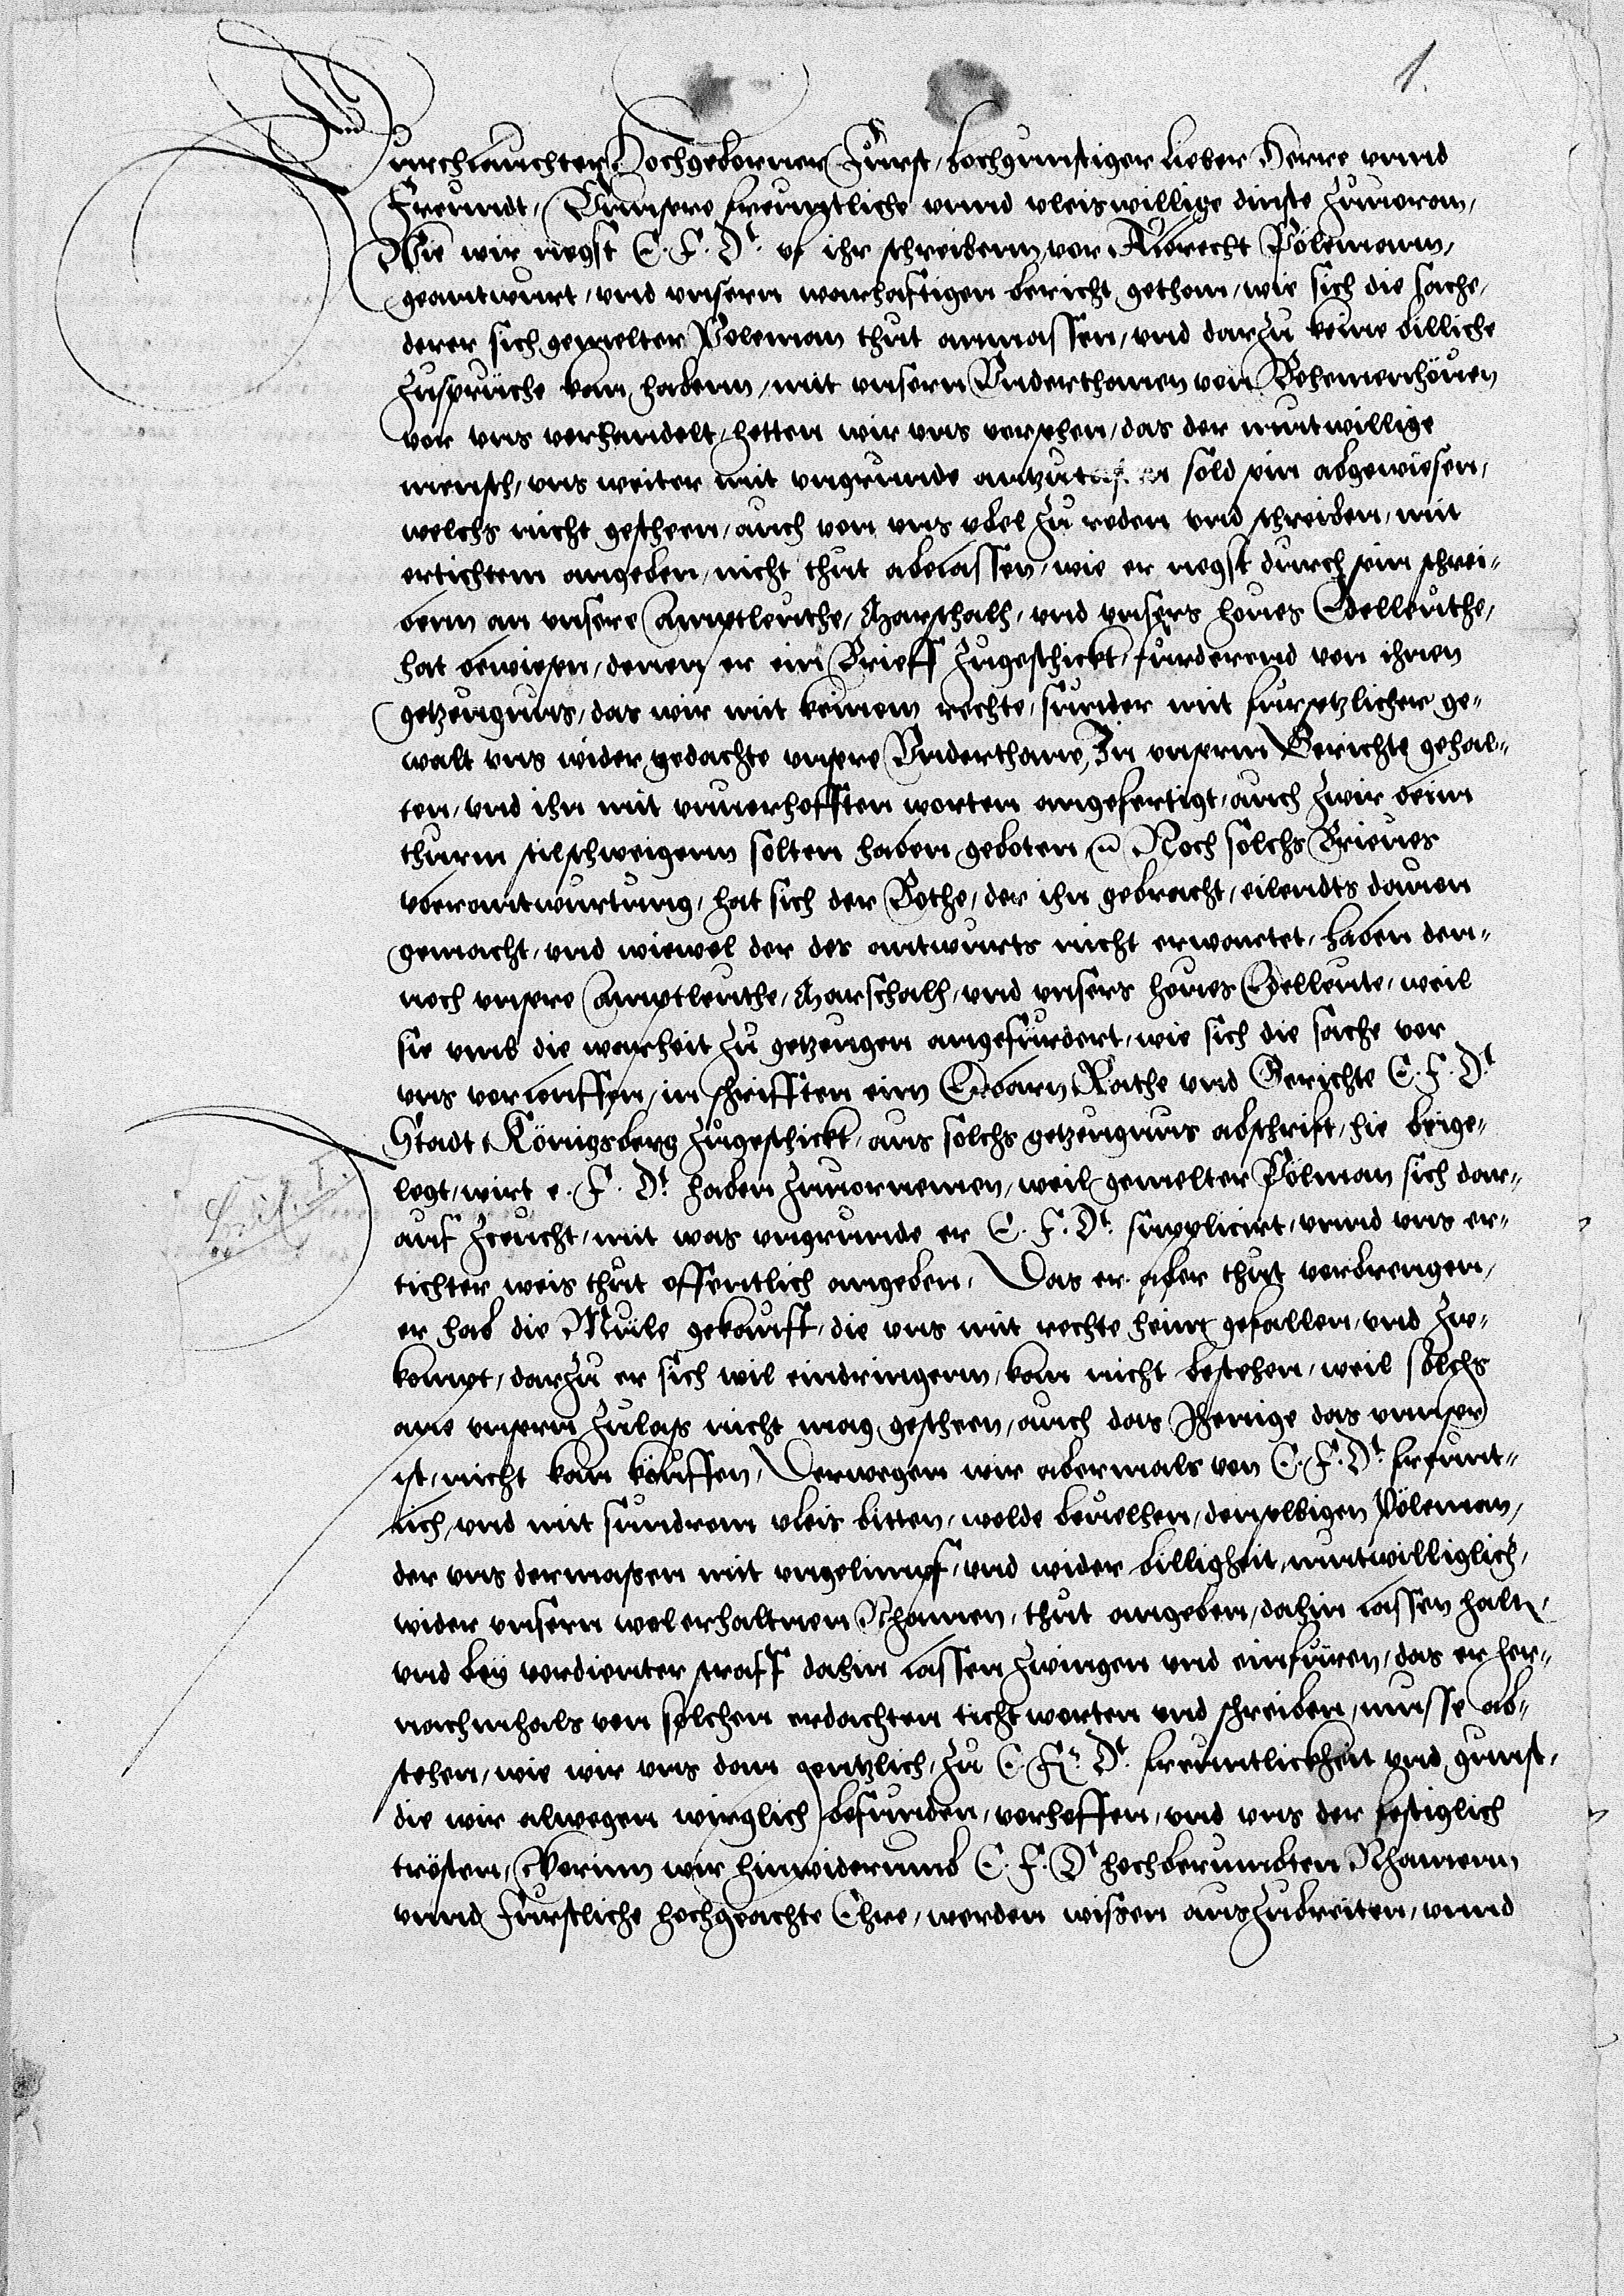 1.
Durchlauchter Hochgeborner Furst, hochgunstiger lieber Herre vnnd
Freundt, Vnnsere freuntliche vnnd vleiswillige dinste zuuoron,
Wie wir negst E. F. Dt. vf ihr schreibenn, vor Albrecht Pölemann,
geantwurt, vnd vnsern warhaftigen bericht gethon, wie sich die sache,
derer sich gemelter Poleman thut anmassen, vnd darzu keine billiche
zuspruche kan habenn, mit vnsern Vnderthanen von Bohemenhöuen
vor vns verhandelt, hetten wir vns versehen, das der mutwillige
mensch, vns weiter mit vngrunde antzutasten sold sein abgewiesen,
welchs nicht gescheen, auch von vns vbel zu reden vnd schreiben, mit
ertichtem angeben, nicht thut ablassen, wie er negst durch sein schrei-
benn an vnsere Amptleuthe, Marschalh, vnd vnsers houes Edelleuthe,
hat bewiesen, denen er ein Brieff zugeschickt, furderend von ihnen
getzeugnus, das wir mit keinem rechte, sunder mit fursetzlicher ge-
walt vns wider gedachte vnsere Vnderthane, In vnserm Gerichte gehal-
ten, vnd ihn mit vnuerhofften worten angefertigt, auch zwir beim
thurm stilschweigenn solten haben geboten, Noch solchs Brieues
vberantwurtung, hat sich der Bothe, der ihn gebracht, eilendts dauon
gemacht, vnd wiewol der des antwurts nicht erwartet, haben den-
noch vnsere Amptleuthe, Marschalh, vnd vnsers houes Edelleute, weil
sie vmb die warheit zu getzeugen angefurdert, wie sich die sache vor
vns verlauffen, in schrifften eim Erbarn Rathe vnd Gerichte E. F. Dt.
Stadt Königsberg zugeschickt, aus solchs getzeugnus abschrift, hie beige-
legt, wirt e. F. Dt. haben zuuornemen, weil gemelter Pölman sich dar-
auf zeucht, mit was vngrunde er E. F. Dt. supplicirt, vnnd vns er-
tichter weis thut offentlich angeben, Das er aber thut verbrengen,
er hab die Mule gekauft, die vns mit rechte heim gefallen, vnd zu-
kompt, darzu er sich wil eindringenn, kan nicht bestehen, weil solchs
ane vnsern zulass nicht mag gescheen, auch das Jhenige das vnnser
ist, nicht kan käuffen, Derwegen wir abermals von E. F. Dt. freunt-
lich, vnd mit sundrem vleis bitten, wolde beuelhen, denselbigen Pöleman,
der vns dermassen mit vngelimpf, vnd wider billigheit, mutwilliglich,
wider vnsern wol erhaltnen Nhamen, thut angeben, dahin lassen halten,
vnd bey verdienter straff dahin lassen zwingen vnd einfuren, das er her-
nachmhals von solchen erdachten tichtworten vnd schreiben, musse ab-
stehen, wie wir vns dan gentzlich, zu E. F. Dt. freuntlickheit vnd gunst,
die wir alwegen wirglich befunden, verhoffen, vnd vns der festiglich
trösten, Worinn wir hinwiderumb E. F. Dt. hochberumbten Nhamenn
vnnd Furstliche hochgeachte Ehre, werden wissen auszubreiten, vnnd